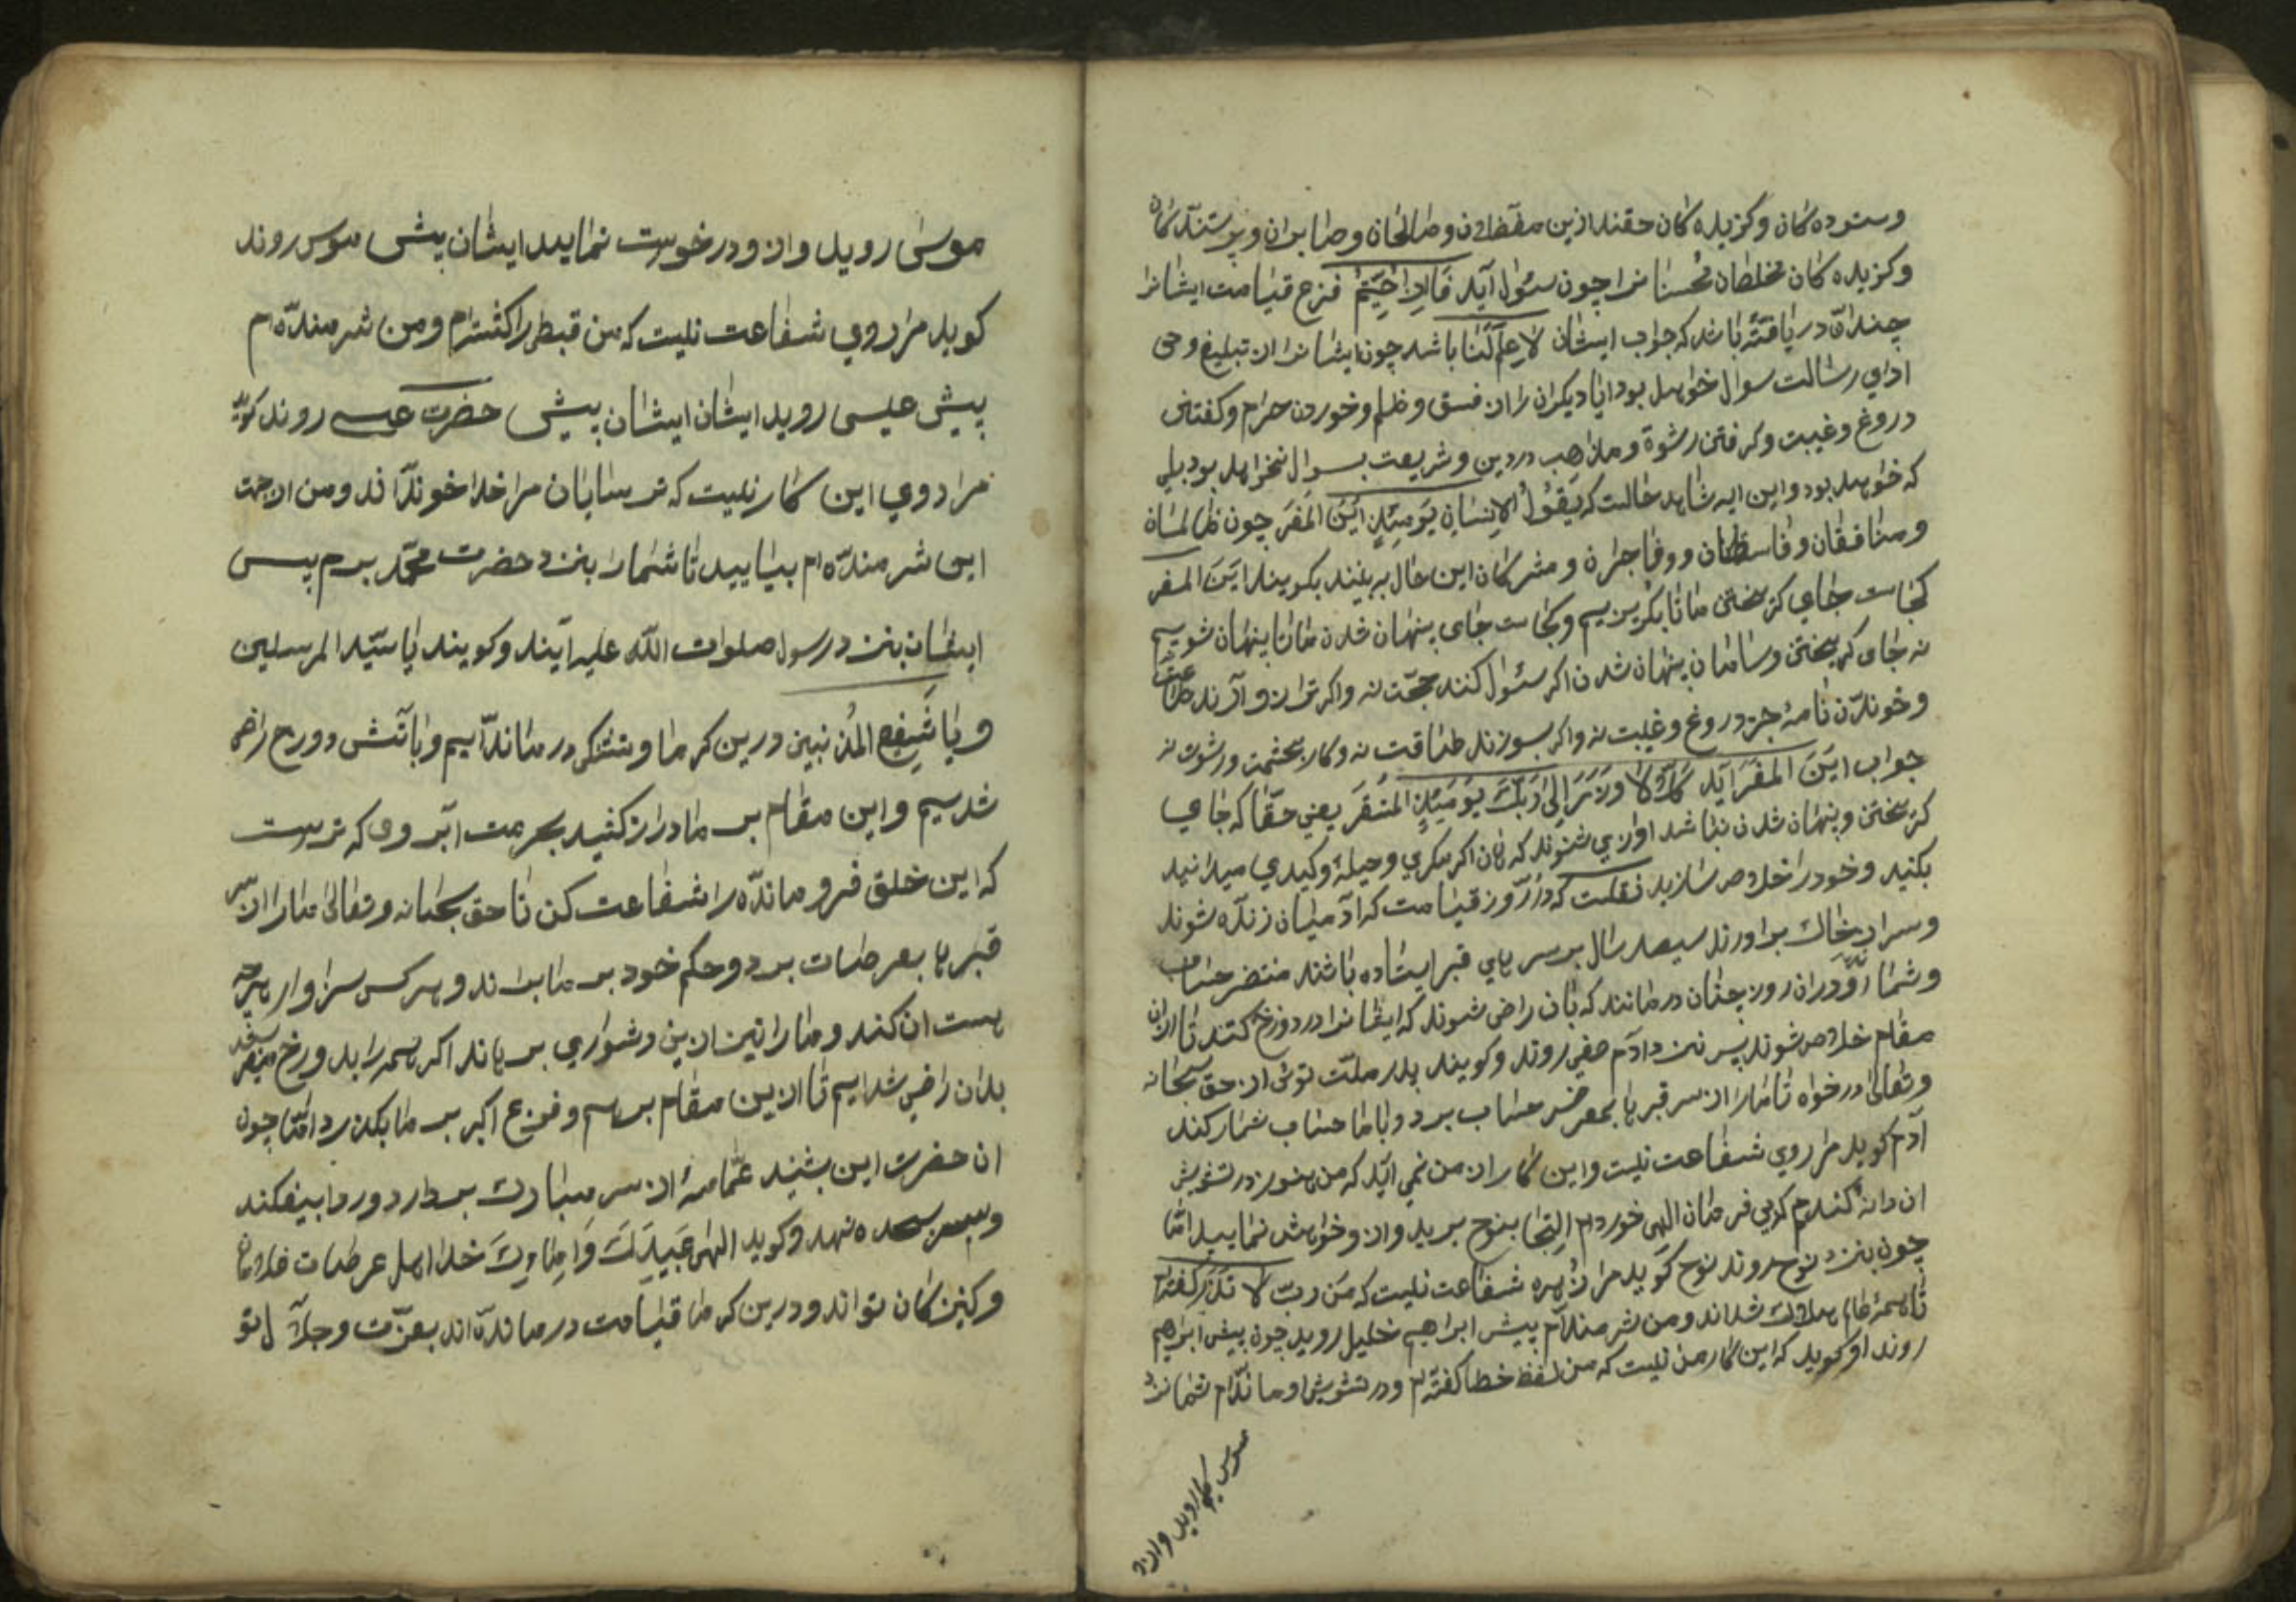 وستوده کان وکزیده کان حقند ازین مفضلان وصالحان وصابران وپرستندکان
وکزیده کان مخلطان محسنانرا چون سئوال آید مَاذا اُجِبتُم فزع قیامت ایشانرا
چندان دریافته باشد که جواب ایشان لاعِلمَ لَنا باشد چون ایشانرا از تبلیغ وحی
ادای رسالت سوال خواهد بود ایا دیکران را از فسق وظلم وخوردن حرام وکفتن
دروغ وغیبت وکرفتن رشوة ومذاهب در دین وشریعت سوال نخواهد بود بلی
که خواهد بود واین ایه شاهد حالست که یَقُولُ الاِنسَانُ یَومَئِذٍ اَینَ المَفَر چون ظالمان
ومنافقان وفاسقان ووفاجران ومشرکان این حال به بینند بکویند اَینَ المفر
کجاست جای کریختن ما تا بکریزیم وکجاست جای پنهان شدن ما تا پنهان شویم
نه جای کریختن وسامان پنهان شدن اکر سئوال کنند حجّت نه واکر ترازو آورند طاعت
وخوندن نامهٔ جز دروغ وغیبت نه واکر بسوزند طاقت نه وکار بحشمت ورشوت نه
جواب اینَ المفَر آید کَلّا لا وَزَرَ اِلیٰ رَبِّکَ یَومَئِذٍ المُستَقَر یعنی حقّا که جای
کریختن وپنهان شدن نباشد اوازی شنوند که هان اکر مکری وحیلهٔ وکیدی میدانید
بکنید وخود را خلاص سازید نقلست که در روز قیامت که آدمیان زنده شوند
وسر از خاك براورند سیصد سال بر سر پای قبر ایستاده باشند منتضر حساب
وشمار ودران روز چنان درمانند که بان راضی شوند که ایشانرا در دوزخ کنند تا ازان
مقام خلاص شوند پس نزد آدم صفی روند وکویند پدر ملّت توئی از حق سبحانه
وتعالی درخواه تا مارا از سر قبر پا بمعرض حساب برد وباما حساب شمار کند
آدم کوید مرا روی شفاعت نیست واین کار از من نمی آید که من هنوز در تشویش
ان دانهٔ کندم کزبی فرمان الهی خورده ام اِلتجا بنوح برید وازو خواهش نمایید امّا
چون بنزد نوح روند نوح کوید مرا زهره شفاعت نیست که مَن رَبّ لا تَذَر کفته ام
تا همهٔ عالم هلاك شداند ومن شرمندام پیش ابراهیم خلیل روید چون پیش ابراهیم
روند او کوید که این کار من نیست که من لفظ خطا کفته ام ودر تشویش او ماندام شما نزد
موسی روید وازو
موسیٰ روید وازو درخوست نمایید ایشان پیش موسی روند
کوید مرا روی شفاعت نیست که من قبطی را کشته ام ومن شرمنده ام
پیش عیسی روید ایشان ایشان پیش حضرت عیسی روند کوید
مرا روی این کار نیست که ترسایان مرا خدا خوندآند ومن ازجهت
این شرمنده ام بیایید تا شمارا بنزد حضرت محمّد برم پس
ایشان بنزد رسول صلوات اللّه علیه آیند وکویند یا سیّد المرسلین
ویا شَفیعَ المُذنبین درین کرما وتشنکی درماندآییم وبا آتش دوزخ راضی
شدیم واین مقام بر ما دراز کشید بحرمت آبروی که تراست
که این خلق فرومانده را شفاعت کن تا حق سبحانه وتعالیٰ مارا از سر
قبرها بعرصات برد وحکم خود بر ما براند وهرکس سزاوار هرچه
هست ان کند ومارا نیز ازین دشواری برهاند اکر همه را بدوزخ میفرستد
بدان راضی شدایم تا ازین مقام برهیم وفزع اکبر بر ما بکذرد امّا چون
ان حضرت این بشنید عمّامهٔ از سر مبارك بردارد وردا بیفکند
وسر بسجده نهد وکوید الهی عَبیدَكَ وَاِماءِكَ خدا اهل عرصات غلامان
وکنیزکان تواند ودرین کرما قیامت درمانده اند بعزّت وجلآل تو